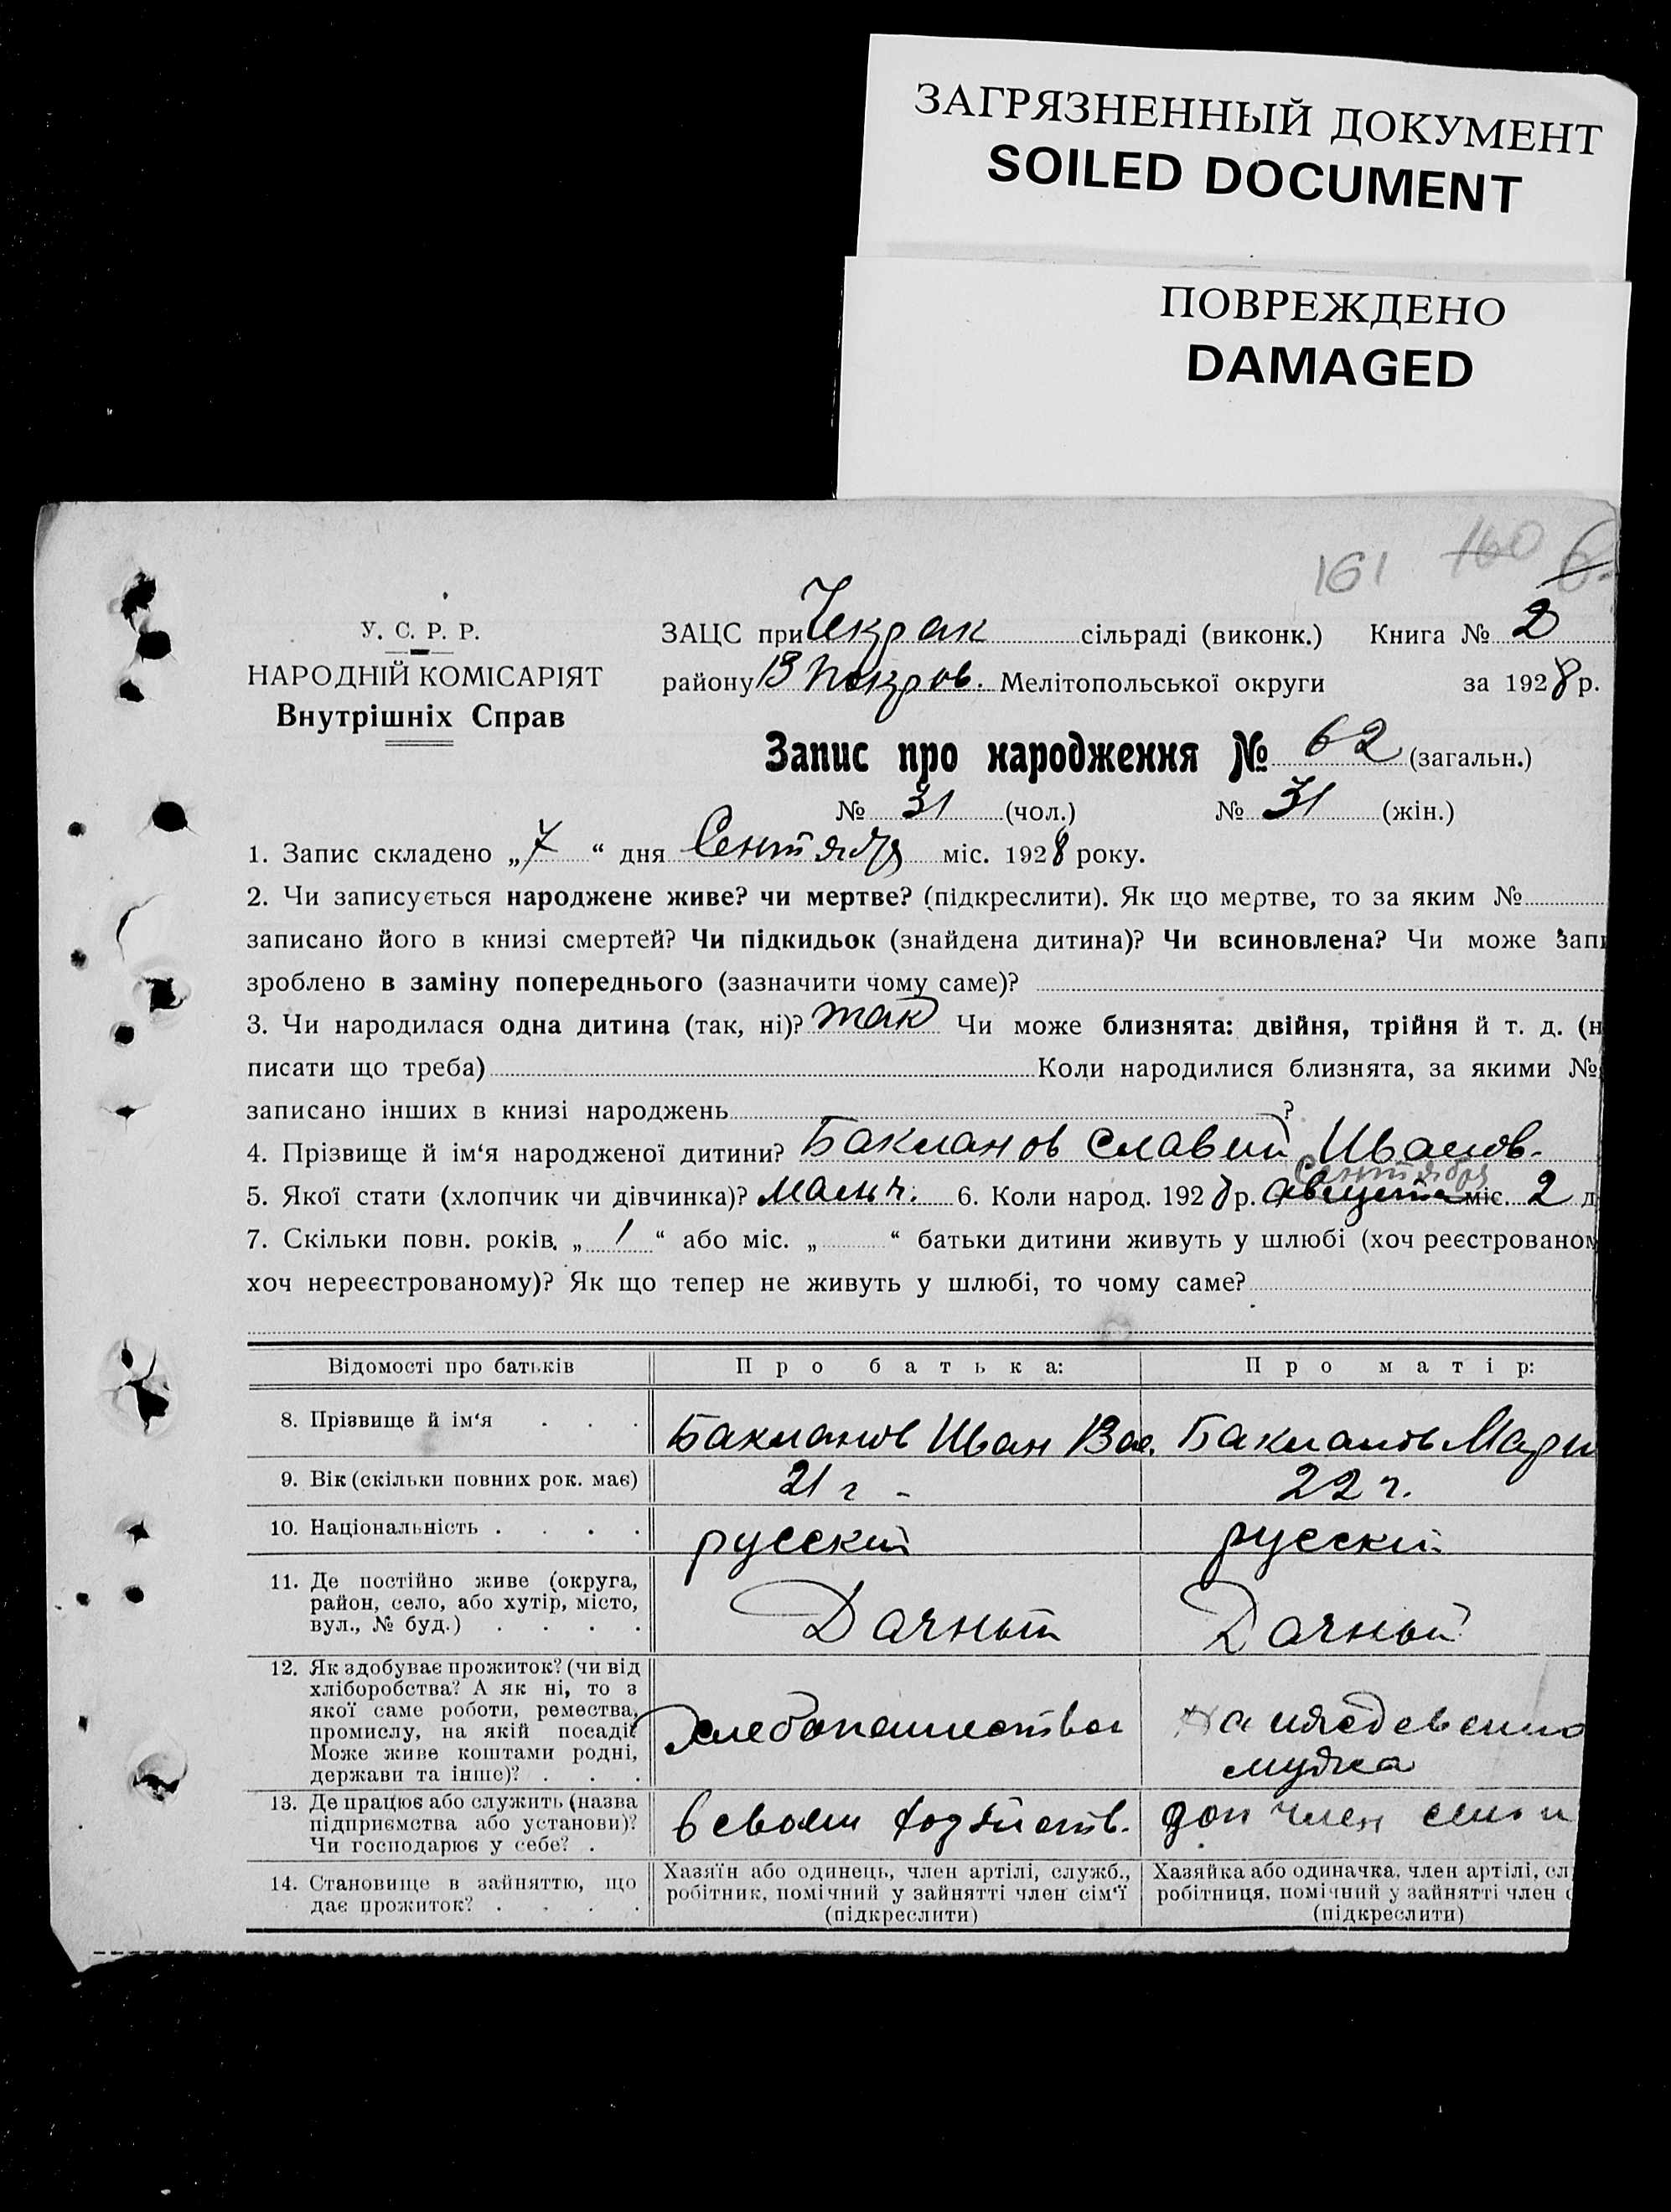 ЗАГРЯЗНЕННЫЙ ДОКУМЕНТ
SOILED DOCUMENT
ПОВРЕЖДЕНО
DAMAGED
161 160
У. С. Р. Р.
НАРОДНІЙ КОМІСАРІЯТ
Внутрішніх Справ
ЗАЦС при Чекрак сільраді (виконк.) Книга № 2
району В Покров. Мелітопольської округи за 1928 р.
Запис про народження № 62 (загальн.)
№ 31 (чол.) № 31 (жін.)
1. Запис складено „7“ дня Сентября міс. 1928 року.
2. Чи записується народжене живе? чи мертве? (підкреслити). Як що мертве, то за яким №
записано його в книзі смертей? Чи підкидьок (знайдена дитина)? Чи всиновлена? Чи може запи
зроблено в заміну попереднього (зазначити чому саме)?
3. Чи народилася одна дитина (так, ні)? так Чи може близнята: двійня, трійня й т. д. (н
писати що треба) Коли народилися близнята, за якими №
записано інших в книзі народжень ?
4. Прізвище й ім‘я народженої дитини? Бакланов Славий Иванов.
Сентября
5. Якої стати (хлопчик чи дівчинка)? Мальч. 6. Коли народ. 1928 р. августа міс. 2 д
7. Скільки повн. років. „1“ або міс. „ “ батьки дитини живуть у шлюбі (хоч реєстрованом
хоч нереєстрованому)? Як що тепер не живуть у шлюбі, то чому саме?
Відомості про батьків Про батька: Про матір:
8. Прізвище й ім‘я Бакланов Иван Вас. Бакланов Мари
9. Вік (скільки повних рок. має) 21 г - 22 г.
10. Національність русский русский
11. Де постійно живе (округа,
район, село, або хутір, місто,
вул., № буд.) Дачный Дачный
12. Як здобуває прожиток? (чи від
хліборобства? А як ні, то з
якої саме роботи, ремества,
промислу, на якій посаді?
Може живе коштами родні,
держави та інше)? Хлебопашества на иждевении
мужа
13. Де працює або служить (назва
підприємства або установи)?
Чи господарює у себе? В своем хозяйств. доп член семи
14. Становище в зайняттю, що
дає прожиток?
Хазяїн або одинець, член артілі, служб.,
робітник, помічний у зайнятті член сім‘ї
(підкреслити)
Хазяйка або одиначка, член артілі, сл
робітниця, помічний у зайнятті член с
(підкреслити)